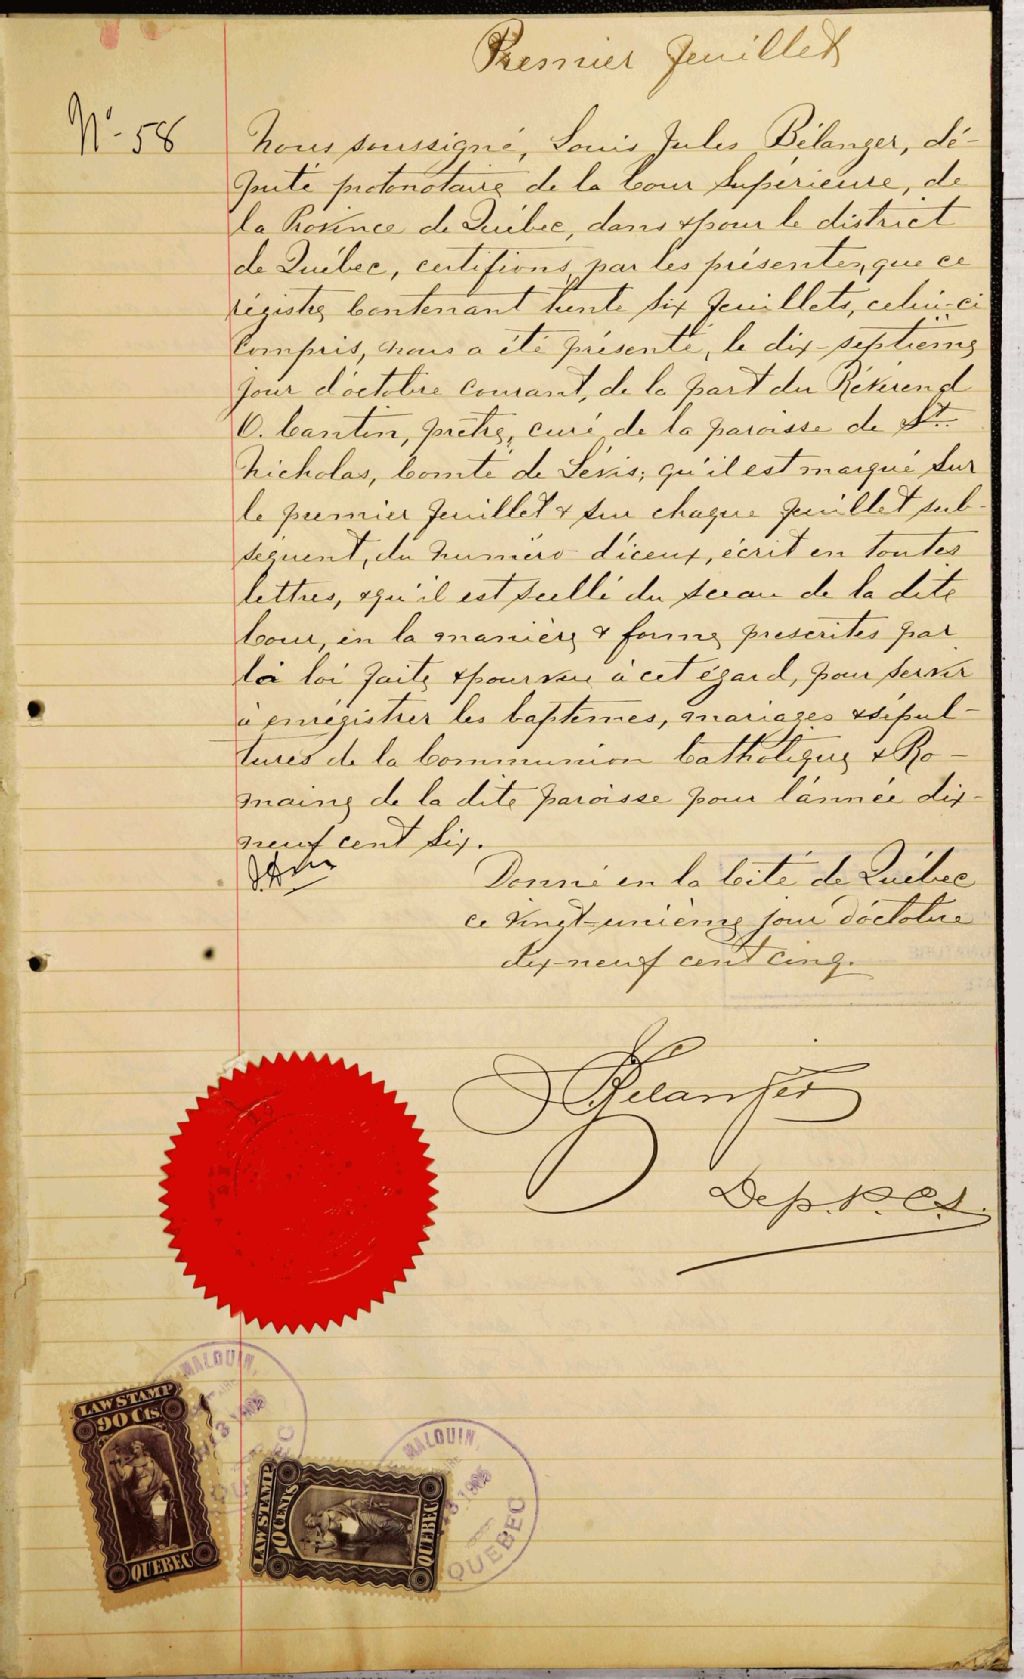 Premier feuillet
No. 58
Nous soussigné, Louis Jules Bélanger, dé-
puté protonotaire de la Cour Supérieure, de
la Province de Québec, dans & pour le district
de Québec, certifions, par les présentes, que ce
régistre contenant trente six feuillets, celui-ci
compris, nous a été présenté, le dix-septième
jour d'octobre courant, de la part du Révérend
O. Cantin, prêtre, curé de la paroisse de St.
Nicholas, Comté de Lévis; qu'il est marqué sur
le premier feuillet & sur chaque feuillet sub-
séquent, du numéro d'iceux, écrit en toutes
lettres, & qu'il est scellé du sceau de la dite
Cour, en la manière & forme prescrites par
la loi faite & pourvue à cet égard, pour servir
à enrégistrer les baptêmes, mariages & sépul-
tures de la Communion Catholique & Ro-
maine de la dite paroisse pour l'année dix-
neuf cent six.
Donné en la Cité de Québec
ce vingt-unième jour d'octobre
dix-neuf cent cinq.
Belanger
Dep. P. C. S.
MALOUIN,
3 1905
QUEBEC
LAW STAMP
90 Cts.
QUEBEC
MALOUIN,
3 1905
QUEBEC
LAW STAMP
10 CENTS
QUEBEC